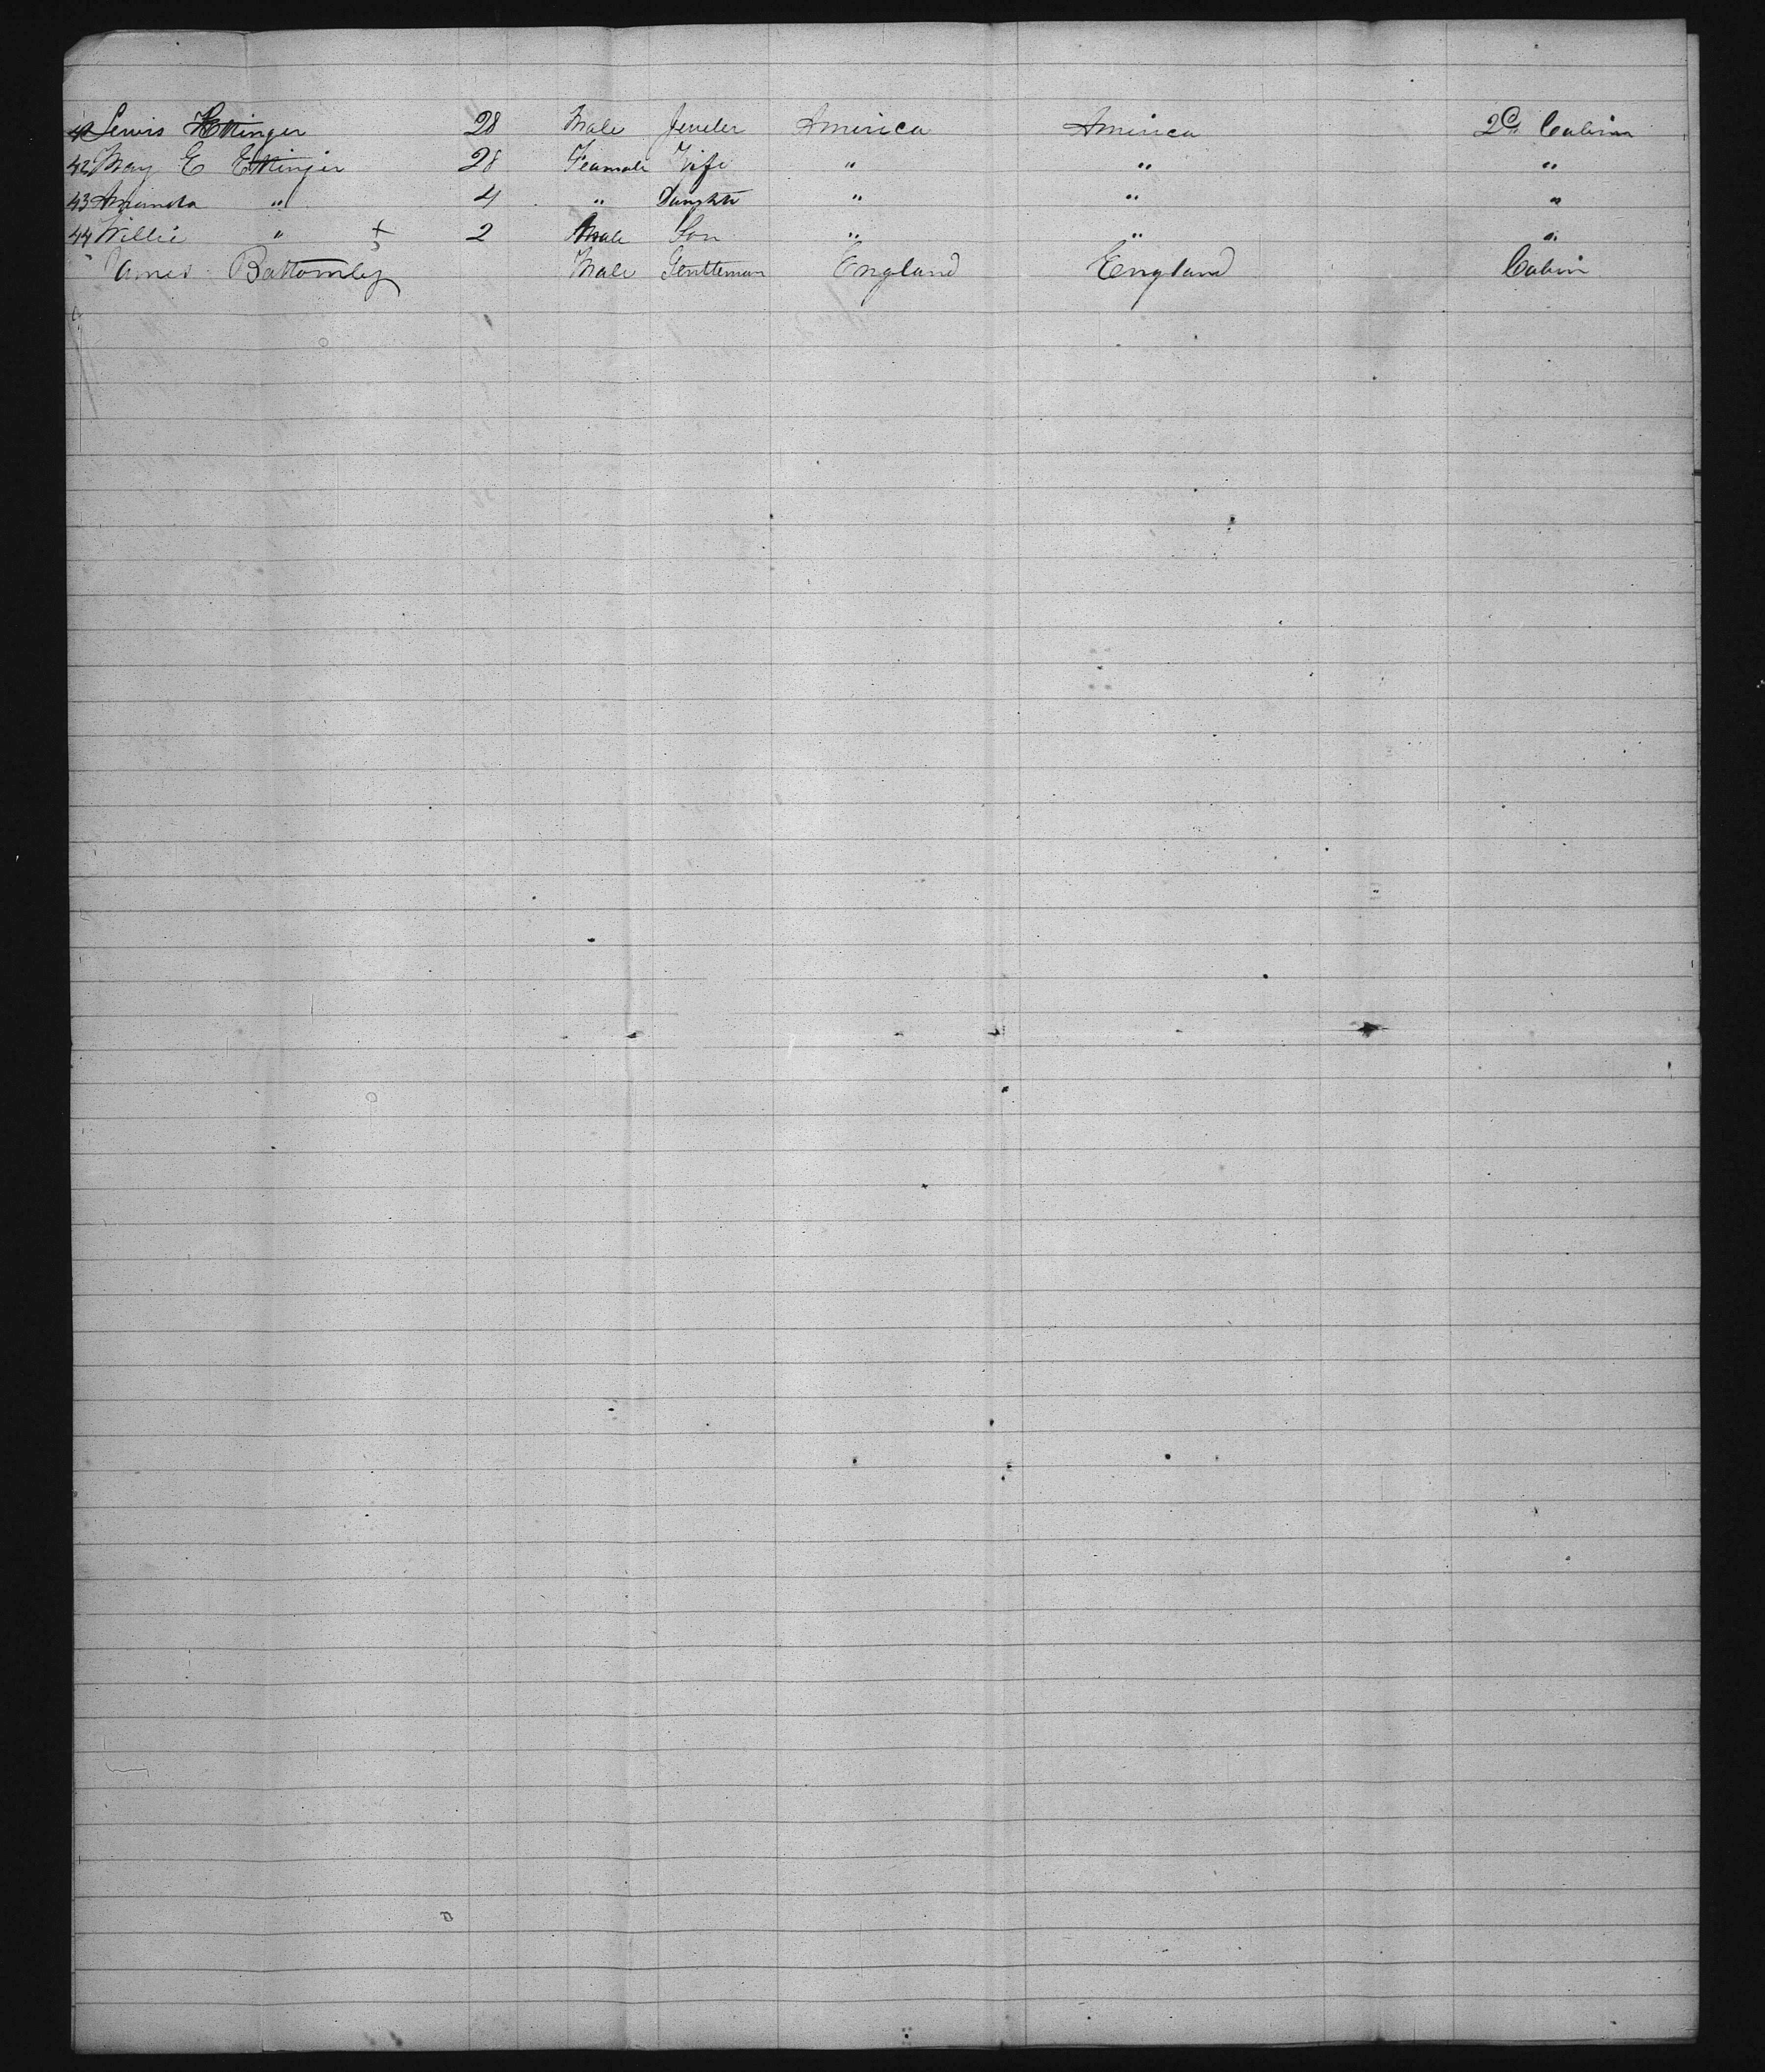 41 Lewis Ettinger 28 Male Jeweler America America 2d Cabin
42 May E Ettinger 28 Feamale Wife " " "
43 Amanda " 4 " Daughter " " "
44 Willie " + 2 Male Son " " "
James Bottomley Male Gentleman England England Cabin